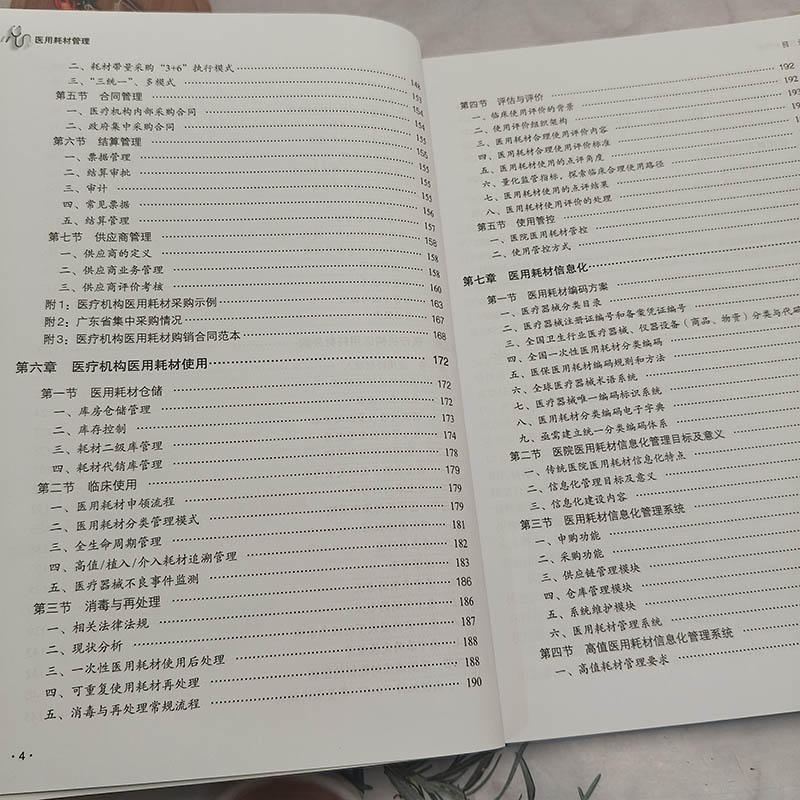 医用耗材管理
二、耗材带量采购“3+6”执行模式 148
三、“三统一”、多模式 153
第五节 合同管理 154
一、医疗机构内部采购合同 154
二、政府集中采购合同 155
第六节 结算管理 155
一、票据管理 155
二、结算审批 155
三、审计 155
四、常见票据 156
五、结算管理 157
第七节 供应商管理 158
一、供应商的定义 158
二、供应商业务管理 158
三、供应商评价考核 160
附1:医疗机构医用耗材采购示例 163
附2:广东省集中采购情况 167
附3:医疗机构医用耗材购销合同范本 168
第六章 医疗机构医用耗材使用 172
第一节 医用耗材仓储 172
一、库房仓储管理 172
二、库存控制 173
三、耗材二级库管理 174
四、耗材代销库管理 178
第二节 临床使用 179
一、医用耗材申领流程 179
二、医用耗材分类管理模式 179
三、全生命周期管理 181
四、高值/植入/介入耗材追溯管理 182
五、医疗器械不良事件监测 183
第三节 消毒与再处理 186
一、相关法律法规 186
二、现状分析 187
三、一次性医用耗材使用后处理 188
四、可重复使用耗材再处理 188
五、消毒与再处理常规流程 190
· 4 ·
目
第四节 评估与评价 192
一、临床使用评价的背景 192
二、使用评价组织架构 193
三、医用耗材合理使用评价内容
四、医用耗材合理使用评价标准
五、医用耗材使用的点评角度
六、量化监管指标，探索临床合理使用路径
七、医用耗材使用的点评结果
八、医用耗材使用评价的处理
第五节 使用管控
一、医院医用耗材管控
二、使用管控方式
第七章 医用耗材信息化
第一节 医用耗材编码方案
一、医疗器械分类目录
二、医疗器械注册证编号和备案凭证编号
三、全国卫生行业医疗器械、仪器设备（商品、物资）分类与代码
四、全国一次性医用耗材分类编码
五、医保医用耗材编码规则和方法
六、全球医疗器械术语系统
七、医疗器械唯一编码标识系统
八、医用耗材分类编码电子字典
九、亟需建立统一分类编码体系
第二节 医院医用耗材信息化管理目标及意义
一、传统医院医用耗材信息化特点
二、信息化管理目标及意义
三、信息化建设内容
第三节 医用耗材信息化管理系统
一、申购功能
二、采购功能
三、供应链管理模块
四、仓库管理模块
五、系统维护模块
六、医用耗材管理系统
第四节 高值医用耗材信息化管理系统
一、高值耗材管理要求